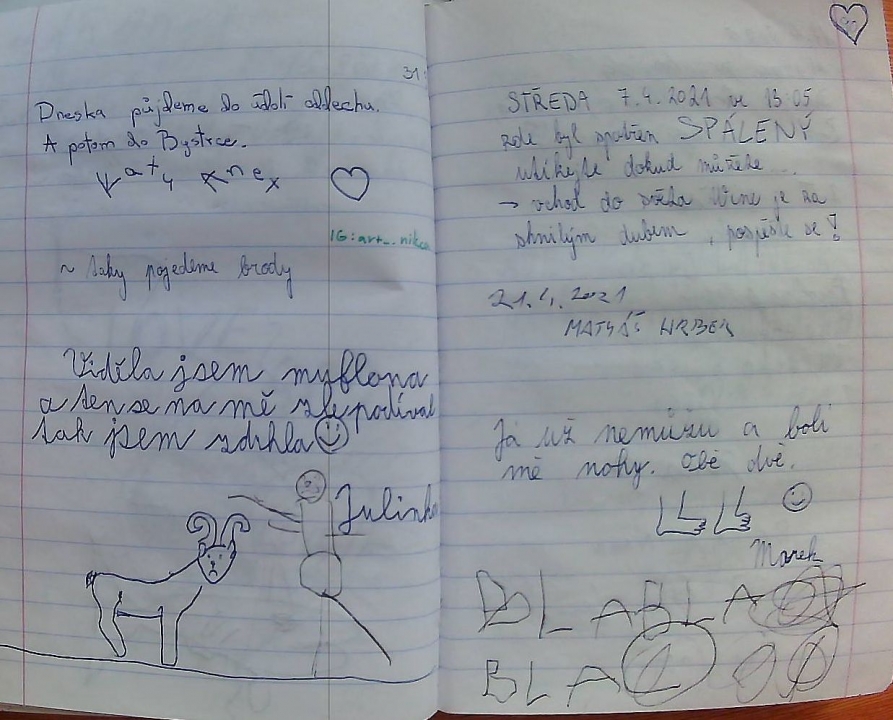 31.
Dneska půjdeme do údolí oddechu.
A potom do Bystrce.
IG: art_.nik
~ taky pojedeme brody
Viděla jsem myflona
a ten se na mě zle podíval
tak jsem zdrhla
Julinka
STŘEDA 7.4.2021 ve 13:05
zde byl spatřen SPÁLENÝ
utíkejte dokud můžete...
→ vchod do světa je za
shnilým dubem, pospěšte se!
21.4.2021
MATYÁŠ HRBEK
Já už nemůžu a bolí
mě nohy. Obě dvě.
Marek
BLABLA
BLA